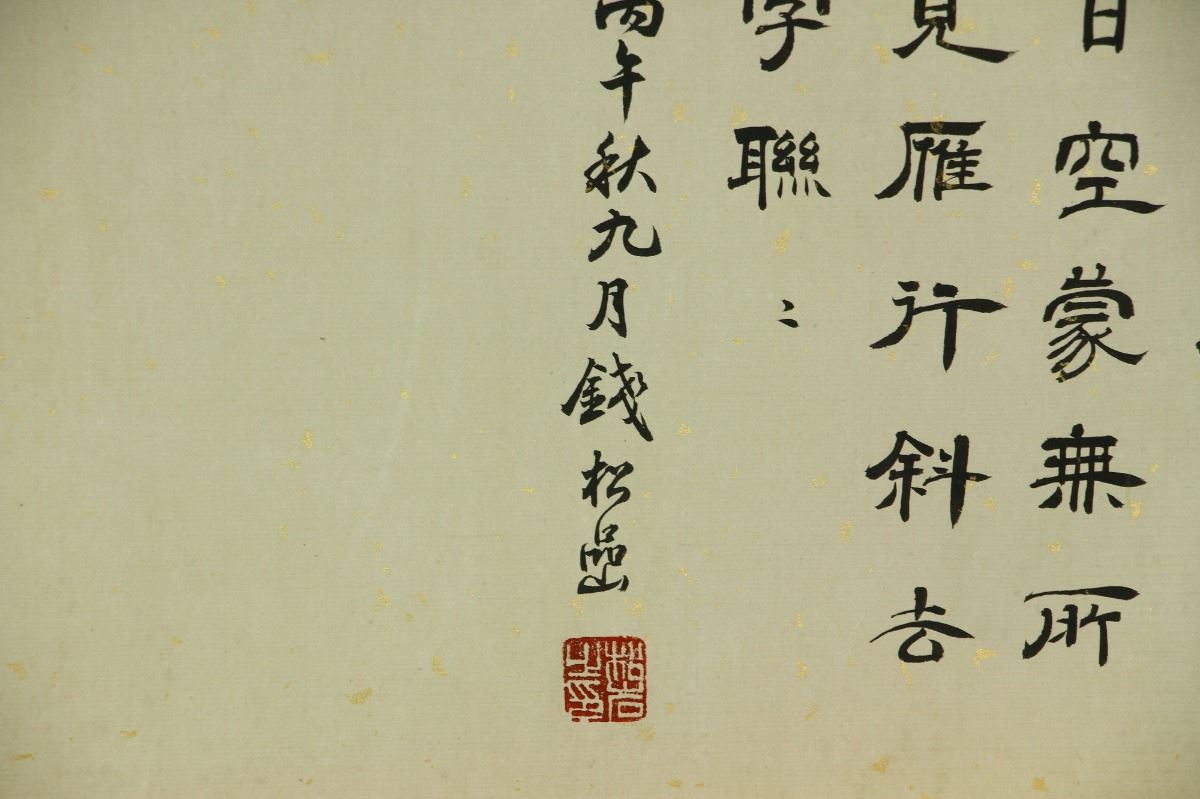 日空蒙無所
見雁行斜去
字聯〻
丙午秋九月錢松嵒